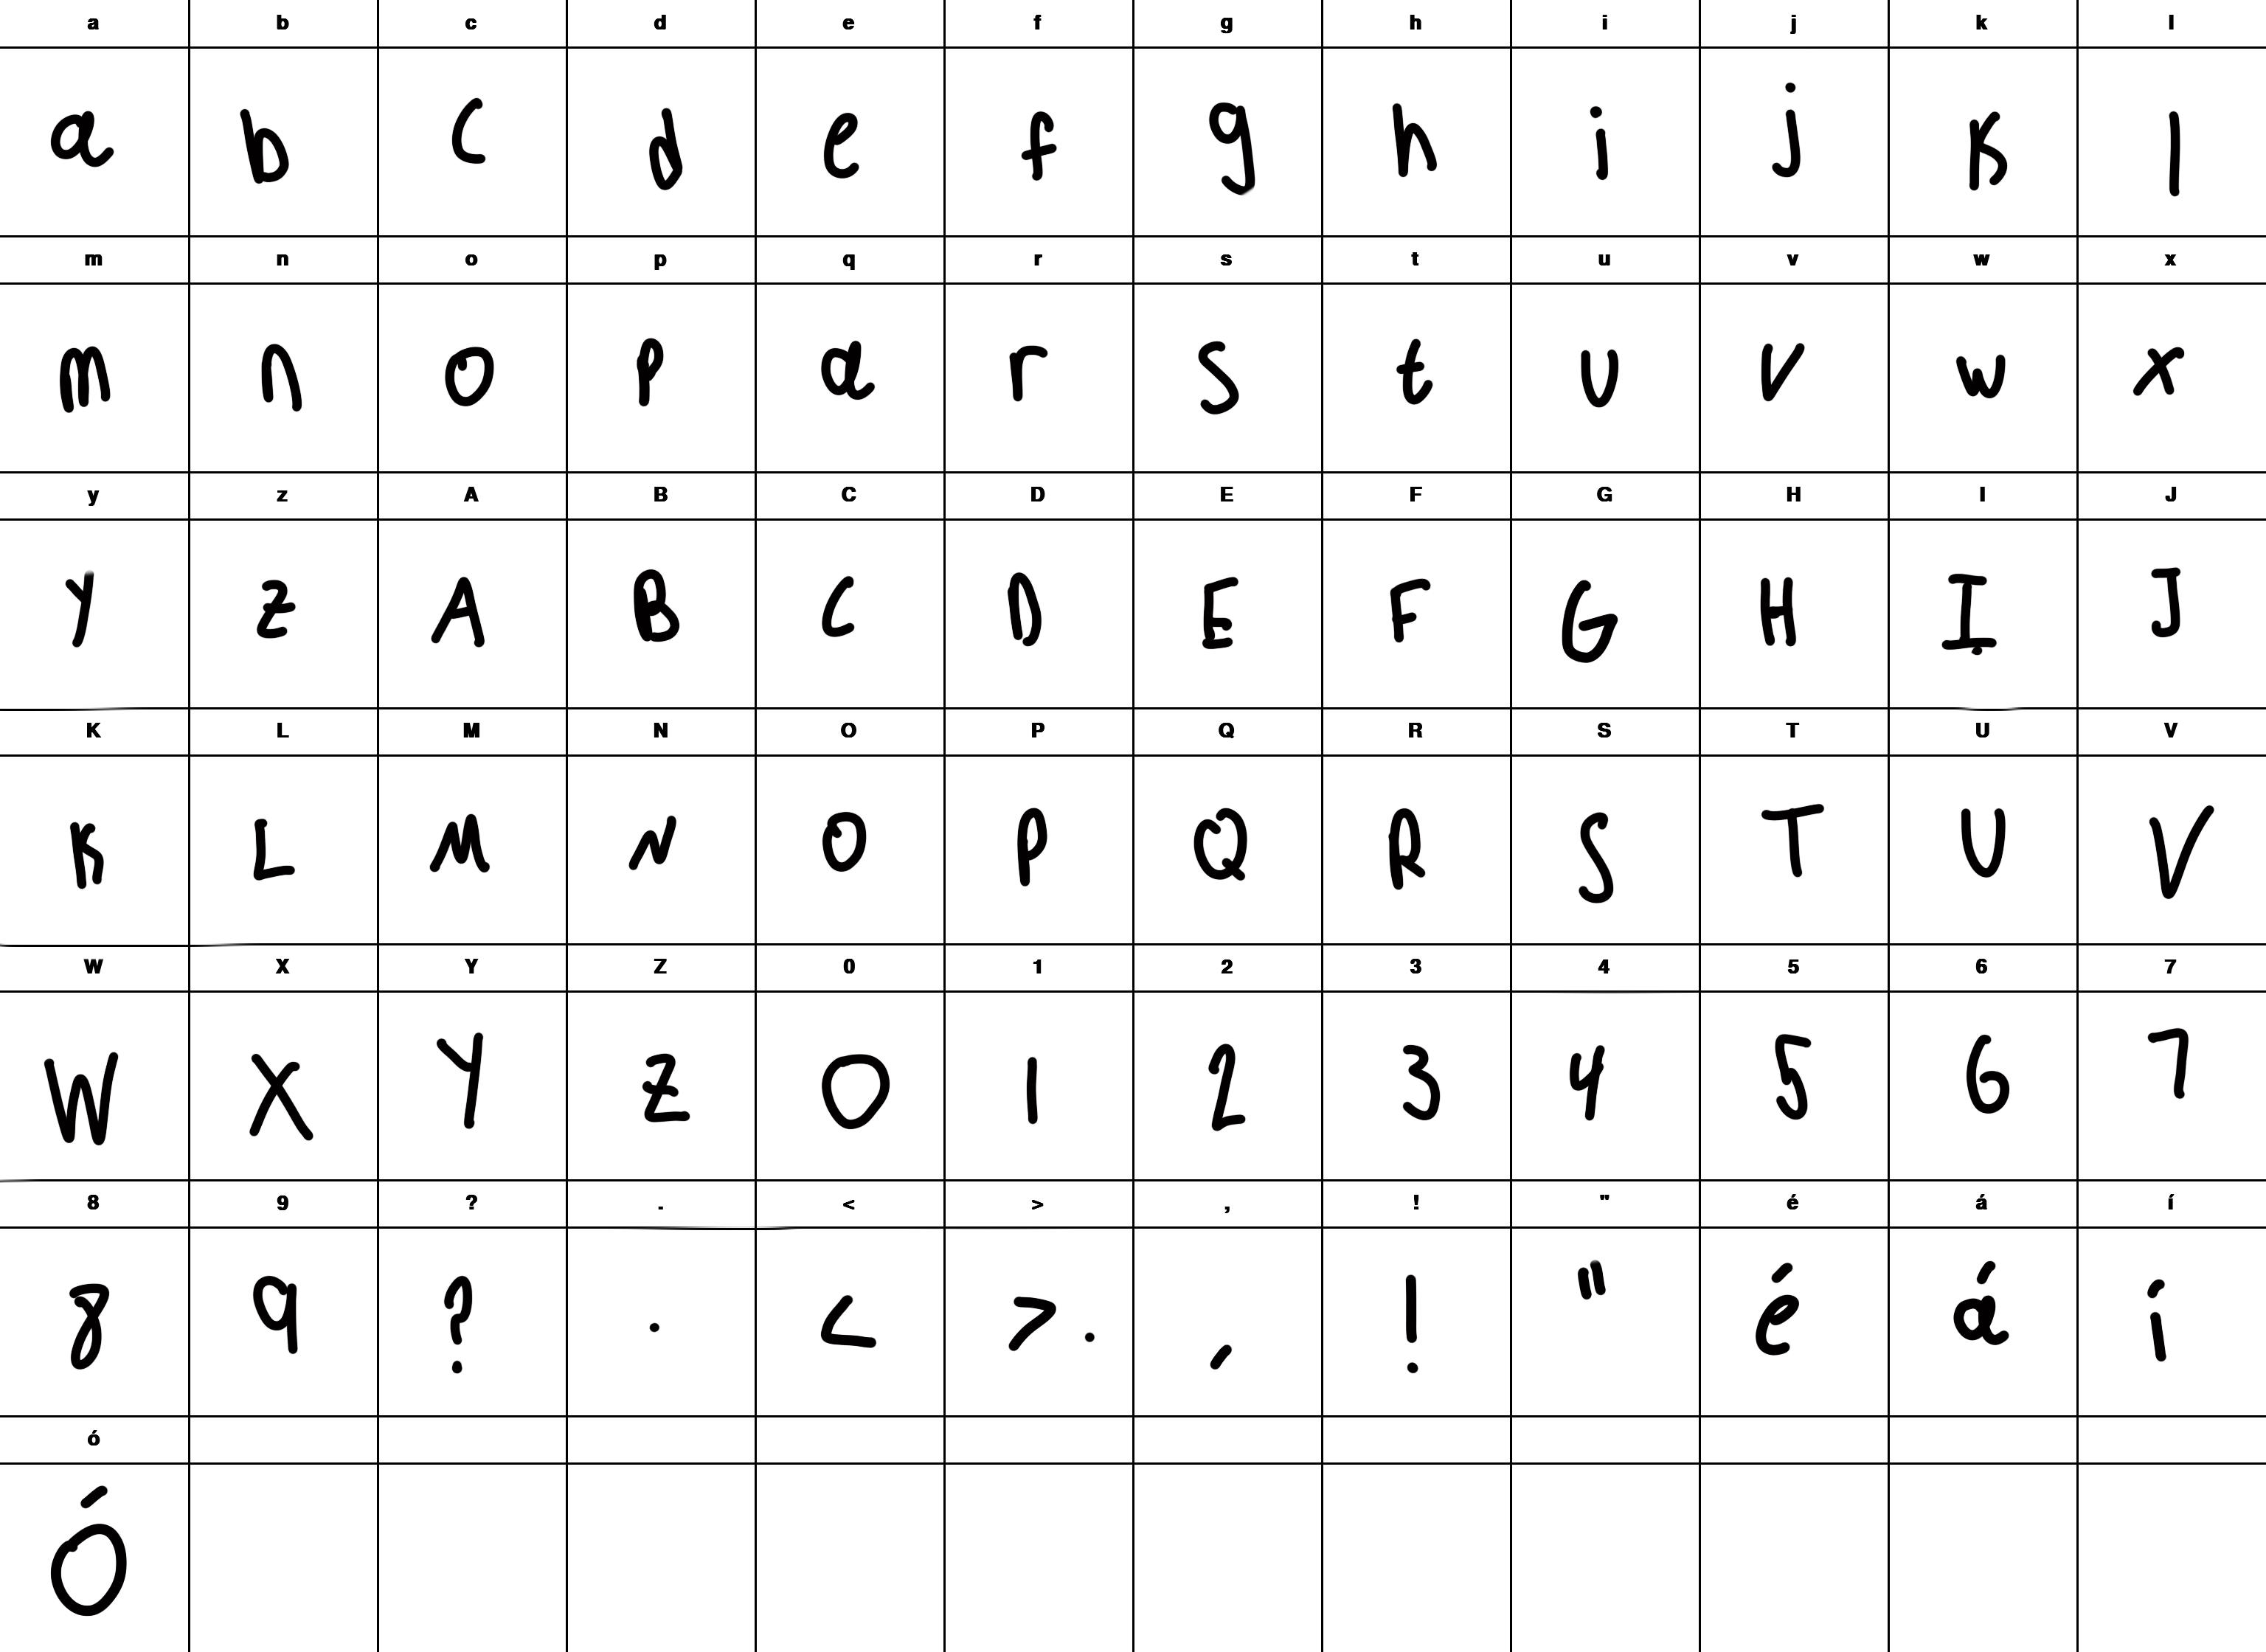 a b c d e f g h i j k l
a b c d e f g h i j k l
m n o p q r s t u v w x
m n o p q r s t u v w x
y z A B C D E F G H I J
y z A B C D E F G H I J
K L M N O P Q R S T U V
K L M N O P Q R S T U V
W X Y Z 0 1 2 3 4 5 6 7
W X Y Z 0 1 2 3 4 5 6 7
8 9 ? . < > , ! " é á í
8 9 ? . < > . , ! " é á í
ó
ó